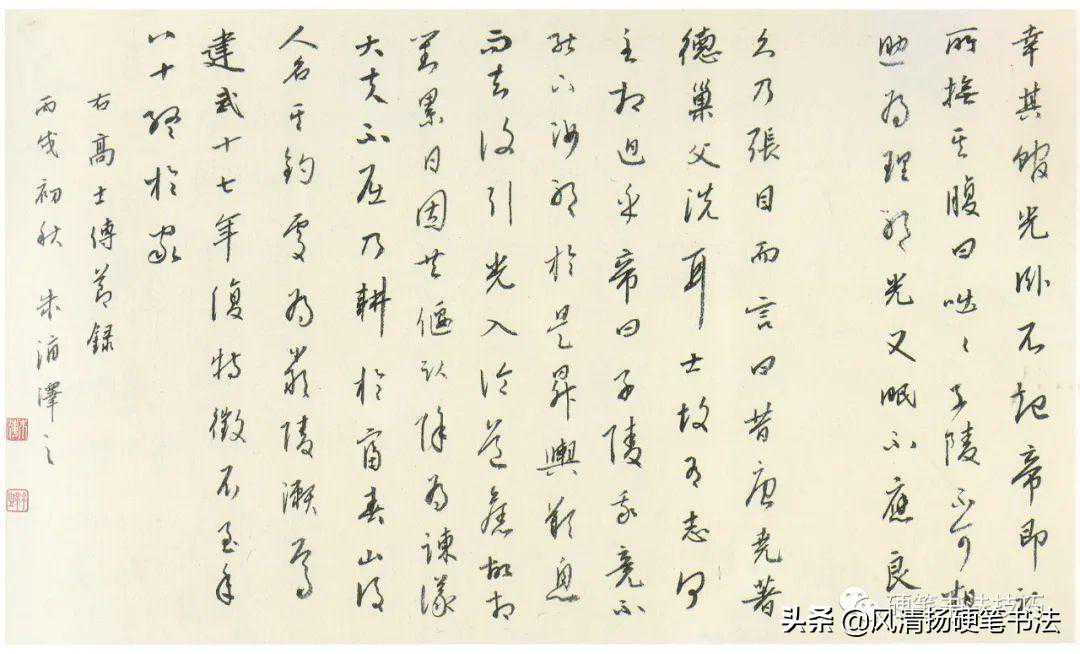 幸其館光卧不起帝即卧
所撫其腹曰咄〻子陵不可相
助为理邪光又眠不應良
久乃張目而言曰昔唐堯著
德巢父洗耳士故有志何
至相迫乎帝曰子陵我竟不
能下汝邪於是昇輿歎息
而去復引光入論道舊故相
對累日因共偃卧除为諫議
大夫不屈乃耕於富春山後
人名其釣處为嚴陵瀨焉
建武十七年復特徵不至年
八十終於家
右高士傳節錄
丙戌初秋 朱澤之
硬笔书法技巧
头条 @风清扬硬笔书法